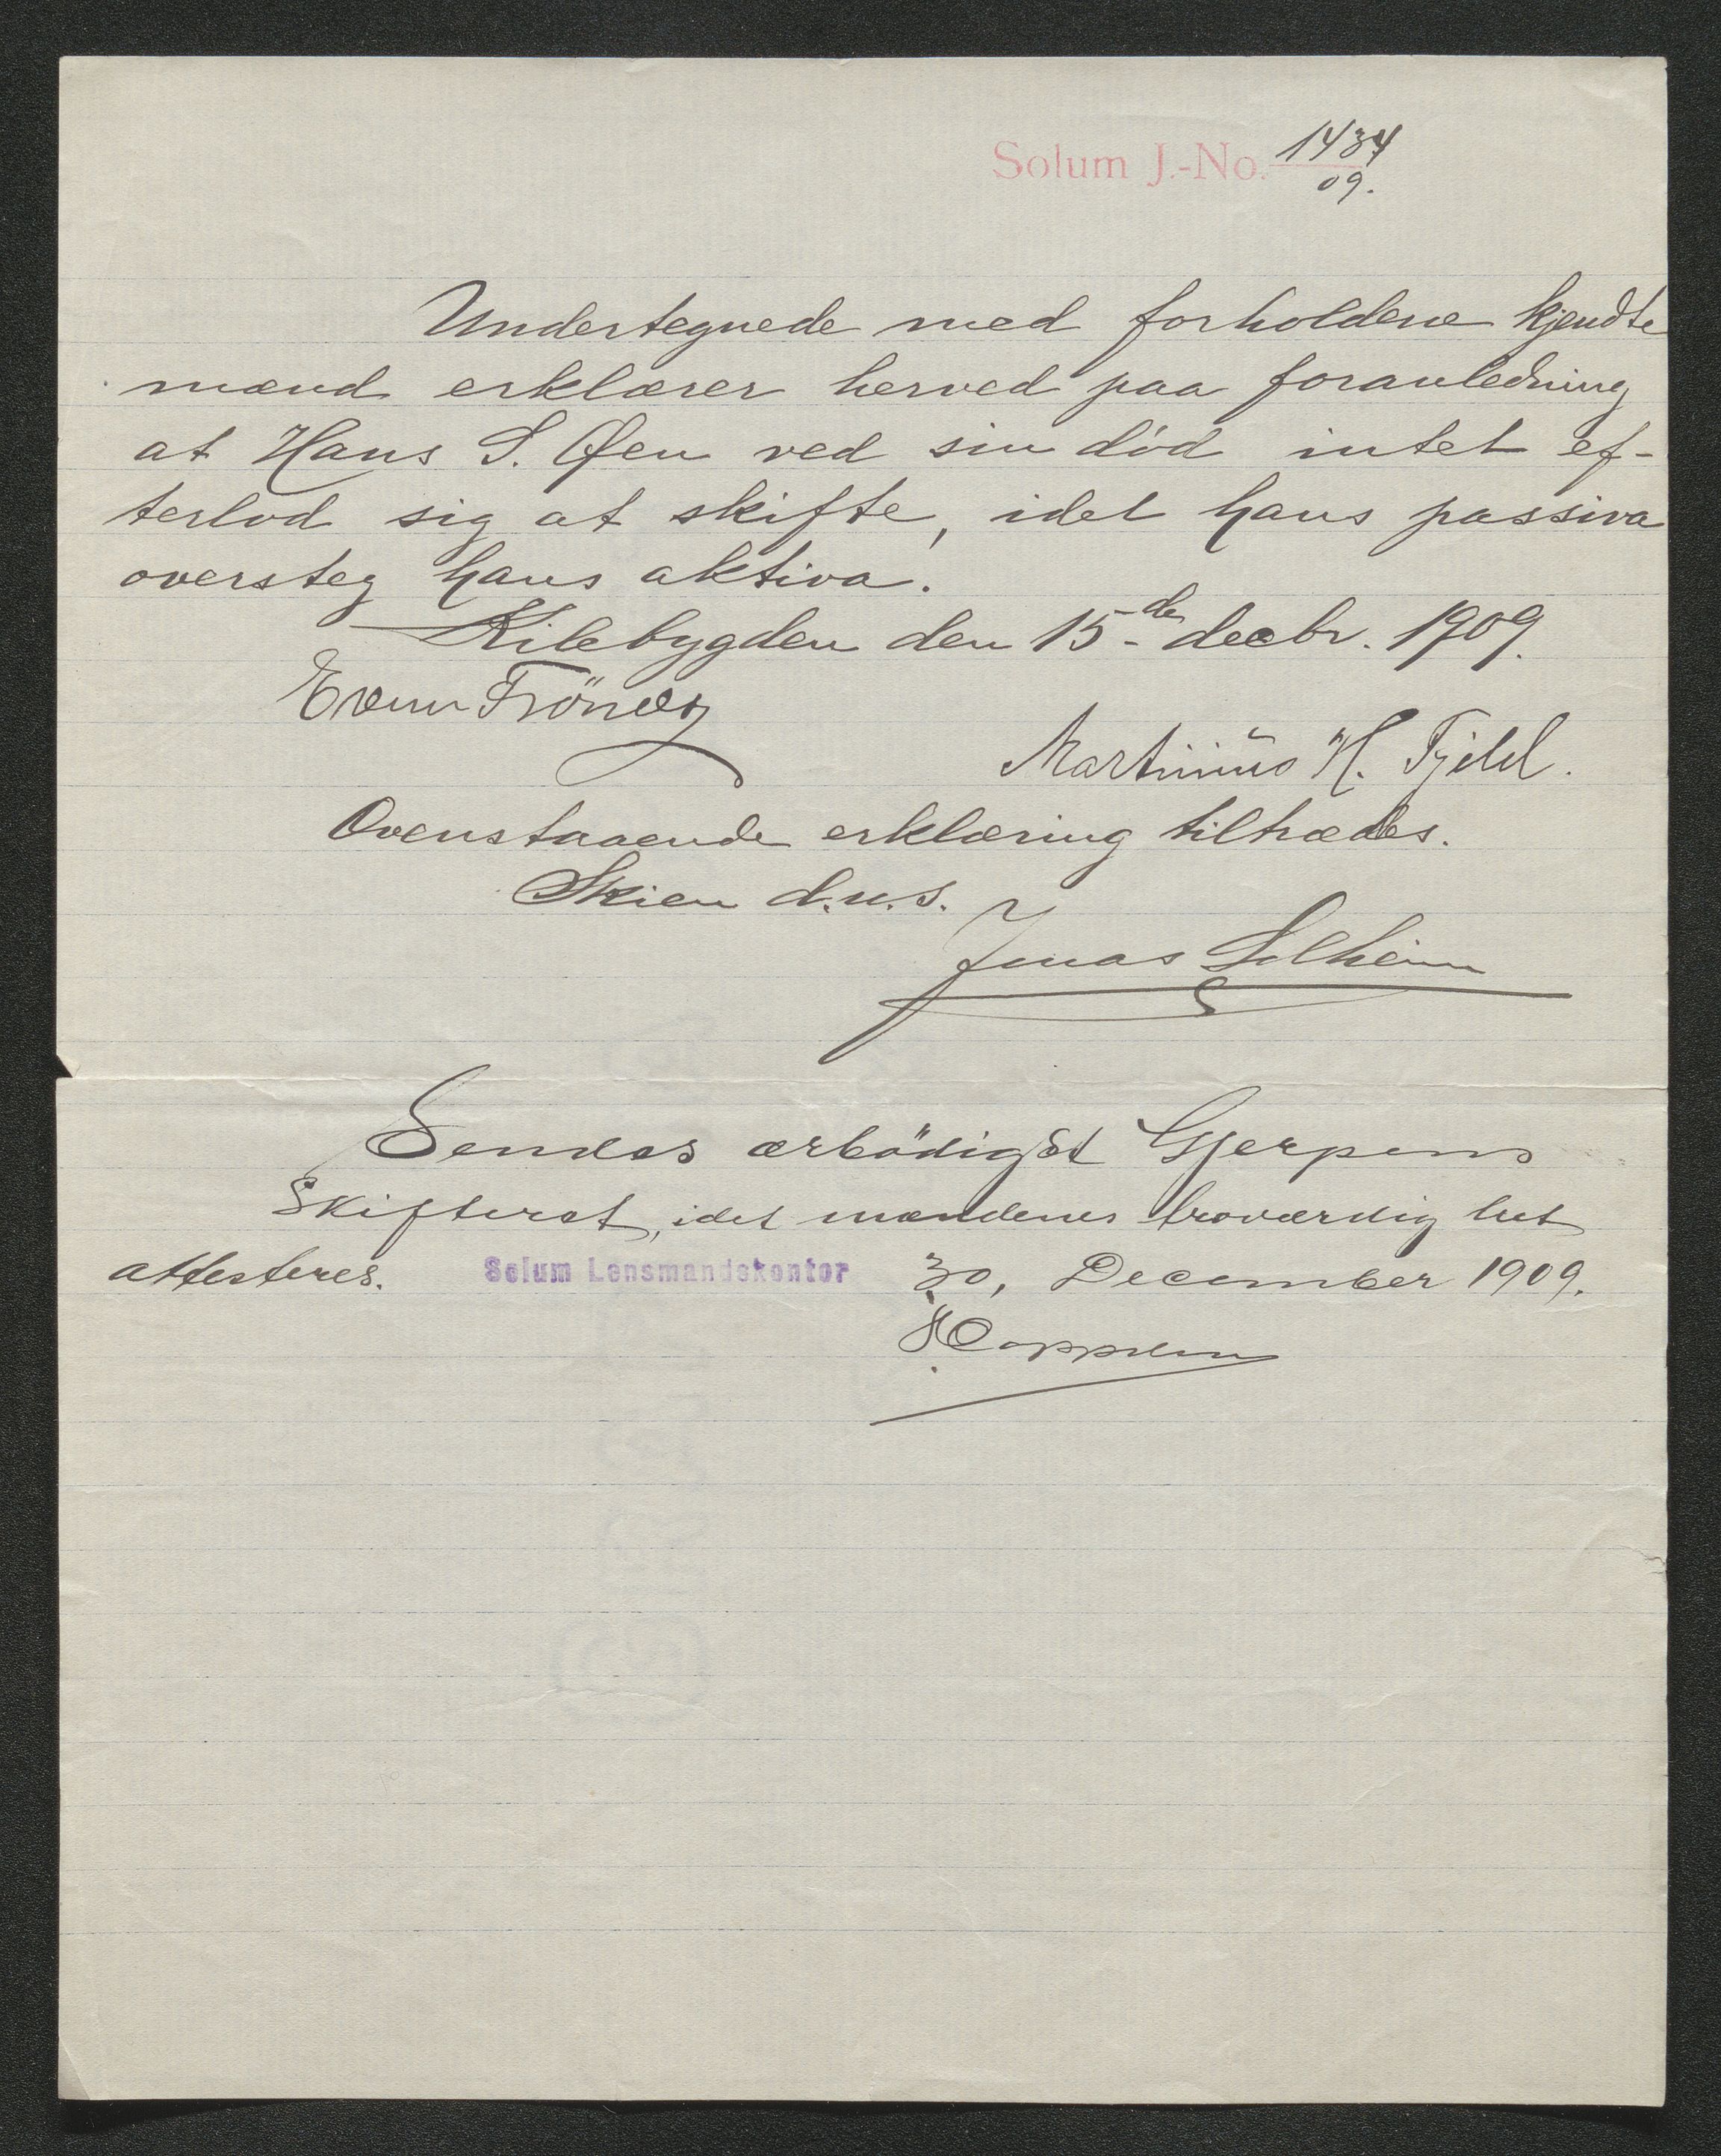 Solum J.-No. 1434
09.
Undertegnede med forholdene kjendte
mænd erklærer herved paa foranledning
at Hans S. Øen ved sin død intet ef-
terlod sig at skifte, idet hans passiva
oversteg hans aktiva.
Kilebygden den 15-de decbr. 1909.
Even
Martinius H. Fjeld.
Ovenstaaende erklæring tiltrædes.
Skien d.u.s.
Jonas Solheim
Sendes ærbödigst Gjerpens
Skifteret, idet mændenes troværdig het
attesteres. Solum Lensmandskontor 30, December 1909.